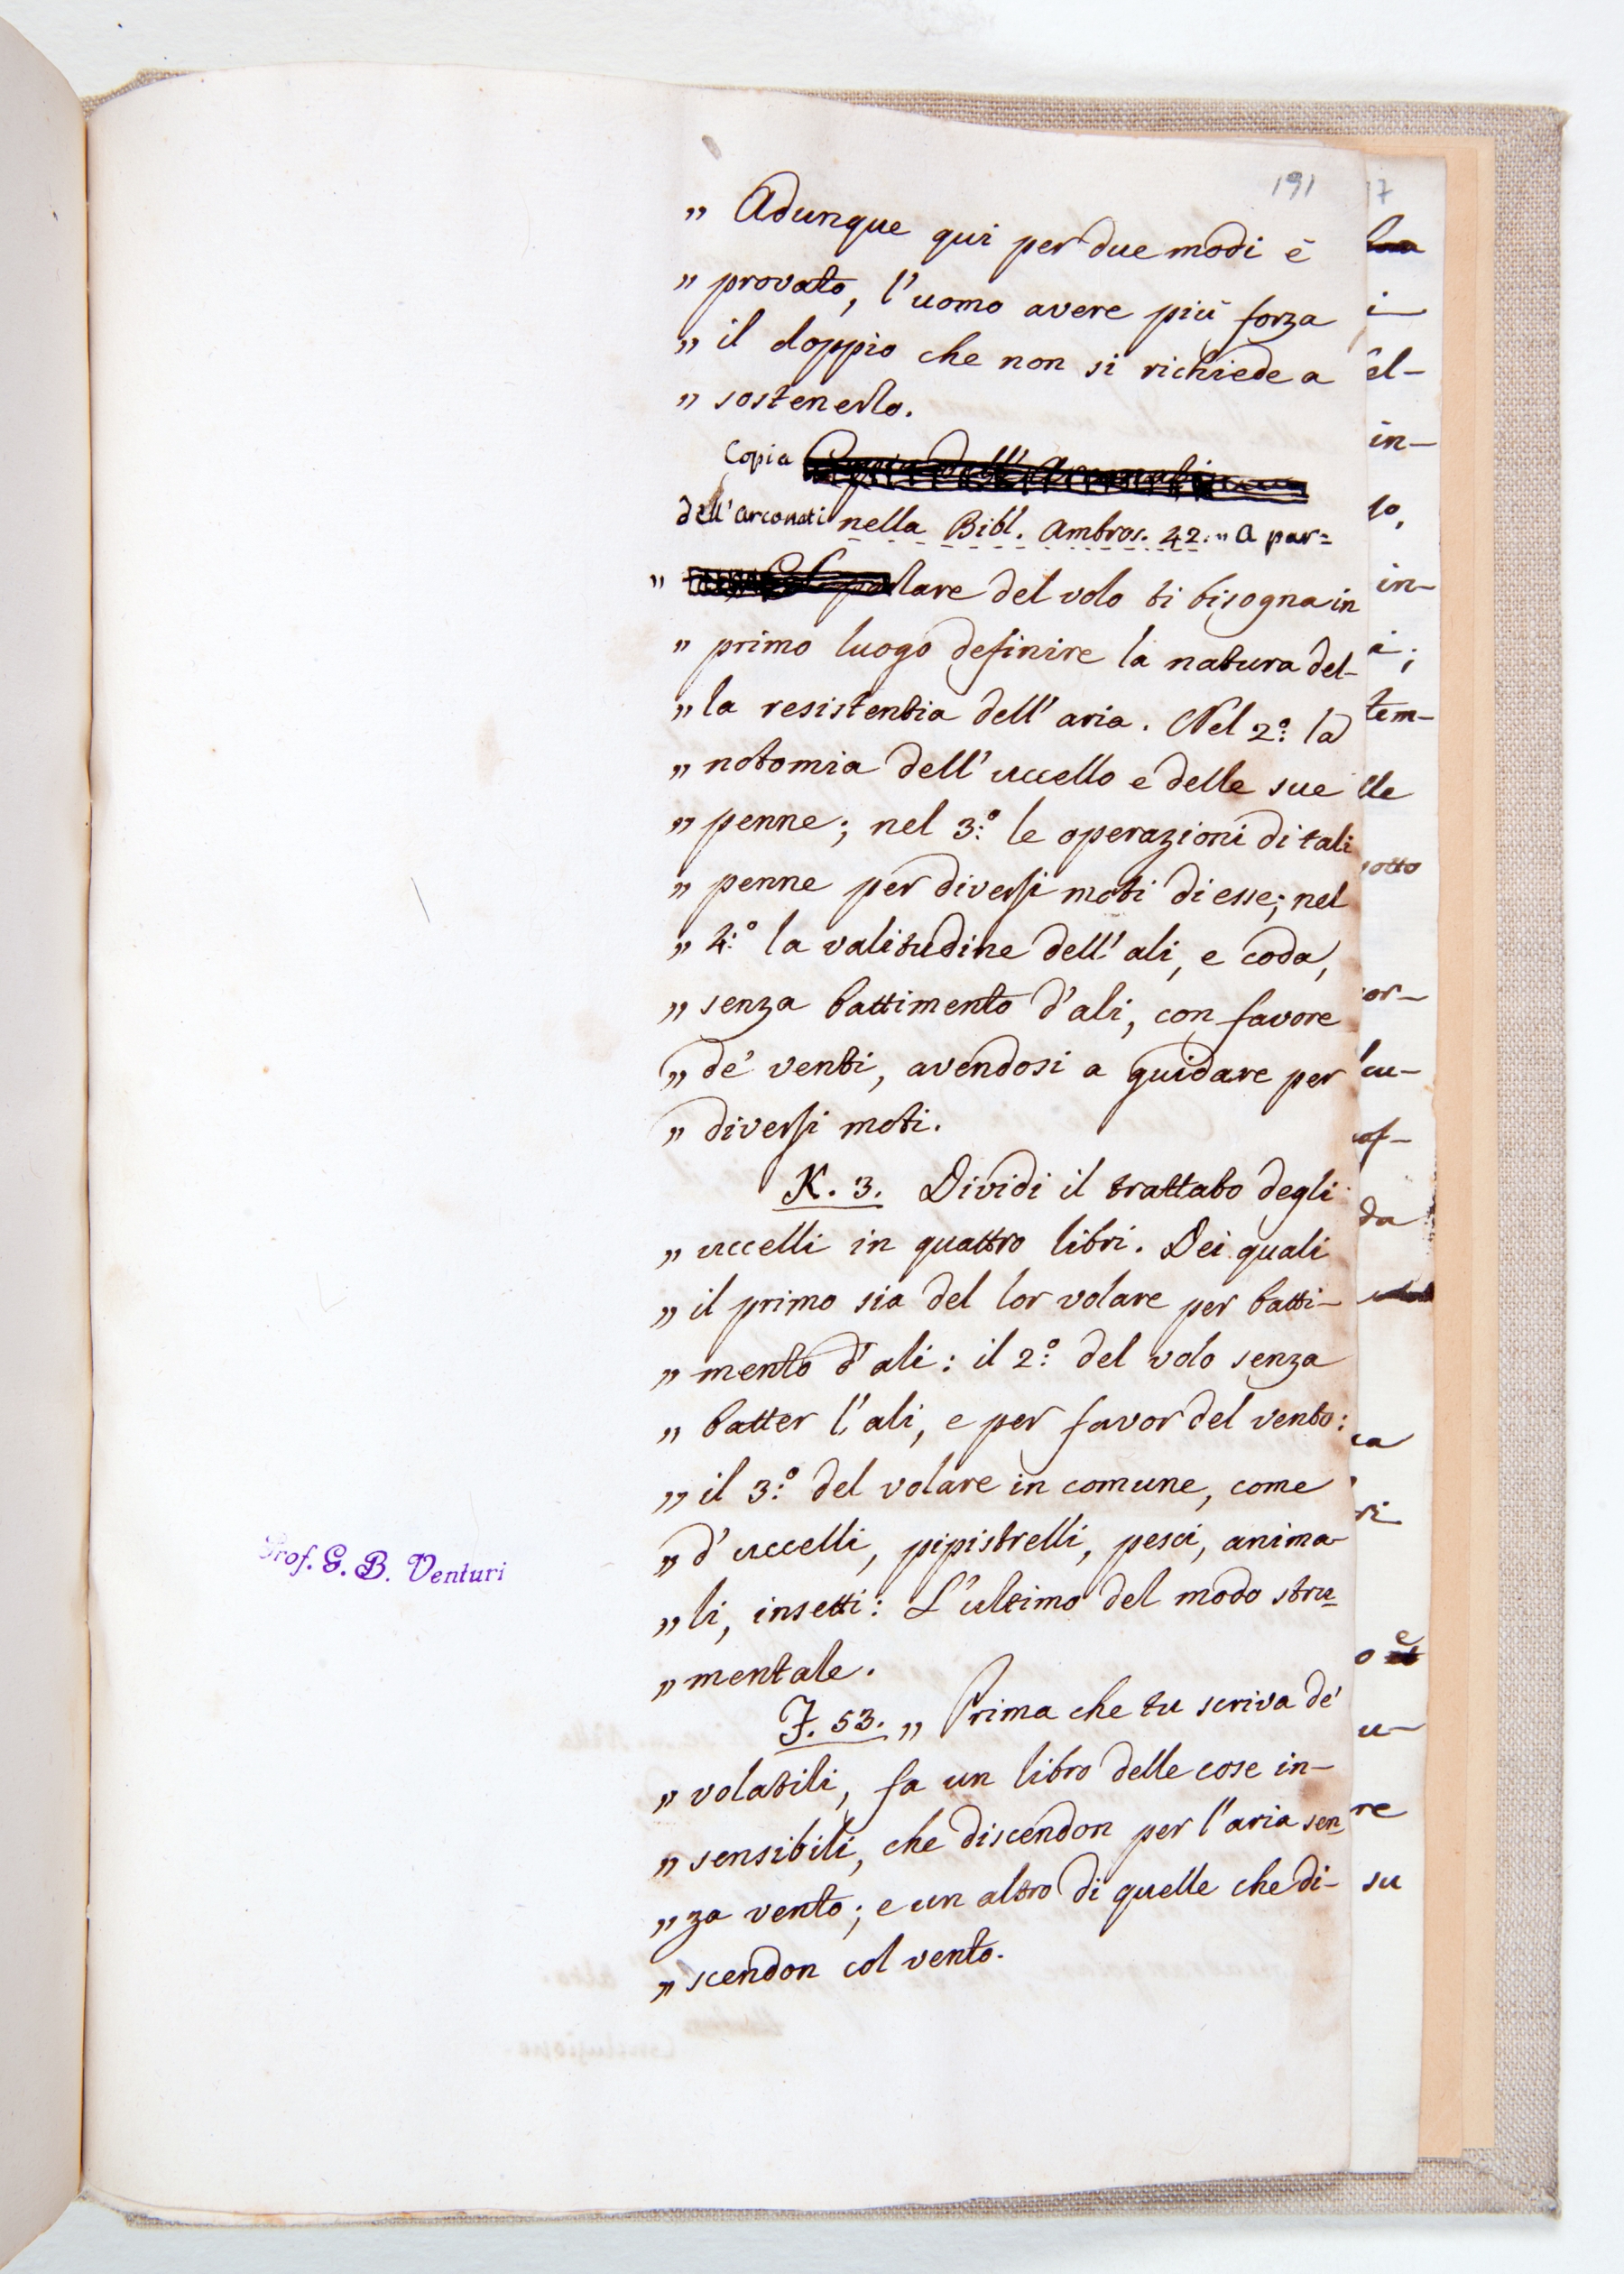 191
„ Adunque qui per due modi è
„ provato, l'uomo avere più forza
„ il doppio che non si richiede a
„ sostenerlo.
Copia
dell'Arconati nella Bibl. Ambros. 42. „ A par=
„ lare del volo ti bisogna in
„ primo luogo definire la natura del-
„ la resistentia dell'aria. Nel 2.º la
„ notomia dell'uccello e delle sue
„ penne; nel 3.º le operazioni di tali
„ penne per diversi moti di esse; nel
„ 4.º la valitudine dell'ali, e coda,
„ senza battimento d'ali, con favore
„ de' venti, avendosi a guidare per
„ diversi moti.
K. 3. Dividi il trattato degli
„ uccelli in quattro libri. Dei quali
„ il primo sia del lor volare per batti-
„ mento d'ali: il 2.º del volo senza
„ batter l'ali, e per favor del vento:
„ il 3.º del volare in comune, come
„ d'uccelli, pipistrelli, pesci, anima-
„ li, insetti: L'ultimo del modo stru-
„ mentale.
F. 53. „ Prima che tu scriva de'
„ volatili, fa un libro delle cose in-
„ sensibili, che discendon per l'aria sen-
„ za vento; e un altro di quelle che di-
„ scendon col vento.
Prof. G. B. Venturi
7
i
el-
in-
lo,
in-
i;
tem-
lle
sotto
or-
cu-
da
ca
ri
o è
u-
re
su